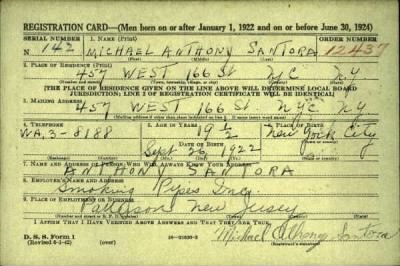 REGISTRATION CARD—(Men born on or after January 1, 1922 and on or before June 30, 1924)
SERIAL NUMBER 1. NAME (Print) ORDER NUMBER
N 142 MICHAEL ANTHONY SANTORA 12437
(First) (Middle) (Last)
2. PLACE OF RESIDENCE (Print)
457 WEST 166 St NYC N.Y.
(Number and street) (Town, township, village, or city) (County) (State)
[THE PLACE OF RESIDENCE GIVEN ON THE LINE ABOVE WILL DETERMINE LOCAL BOARD
JURISDICTION; LINE 2 OF REGISTRATION CERTIFICATE WILL BE IDENTICAL]
3. MAILING ADDRESS
457 WEST 166 St NYC NY
(Mailing address if other than place indicated on line 2. If same insert word same)
4. TELEPHONE 5. AGE IN YEARS 6. PLACE OF BIRTH
WA. 3-8188 19 1/2 New York City
DATE OF BIRTH (Town or county)
Sept 26, 1922
(Exchange) (Number) (Mo.) (Day) (Yr.) (State or country)
7. NAME AND ADDRESS OF PERSON WHO WILL ALWAYS KNOW YOUR ADDRESS
ANTHONY SANTORA
8. EMPLOYER'S NAME AND ADDRESS
Smoking Pipes Inc.
9. PLACE OF EMPLOYMENT OR BUSINESS
New Jersey
(Number and street or R. F. D. number) (Town) (County) (State)
I AFFIRM THAT I HAVE VERIFIED ABOVE ANSWERS AND THAT THEY ARE TRUE.
D. S. S. Form 1
(Revised 6-1-42) Michael Anthony Santora
(Registrant's signature)